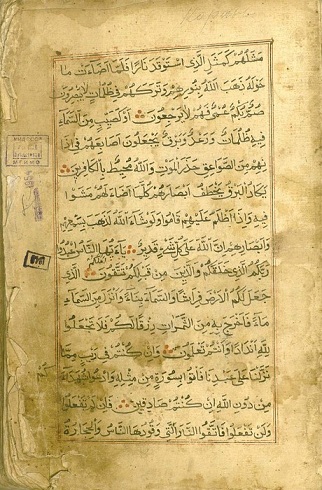 مَثَلُهُمْ كَمَثَلِ الَّذِي اسْتَوْقَدَ نَارًا فَلَمَّا اَضَاءَتْ مَا
حَوْلَهُ ذَهَبَ اللهُ بِنُورِهِمْ وَتَرَكَهُمْ فِي ظُلُمَاتٍ لَا يُبْصِرُونَ
صُمٌّ بُكْمٌ عُمْيٌ فَهُمْ لَا يَرْجِعُونَ اَوْ كَصَيِّبٍ مِنَ السَّمَاءِ
فِيهِ ظُلُمَاتٌ وَرَعْدٌ وَبَرْقٌ يَجْعَلُونَ اَصَابِعَهُمْ فِي اٰذَا
نِهِمْ مِنَ الصَّوَاعِقِ حَذَرَ الْمَوْتِ وَاللهُ مُحِيطٌ بِالْكَافِرِينَ
يَكَادُ الْبَرْقُ يَخْطَفُ اَبْصَارَهُمْ كُلَّمَا اَضَاءَ لَهُمْ مَشَوْا
فِيهِ وَاِذَا اَظْلَمَ عَلَيْهِمْ قَامُوا وَلَوْ شَاءَ اللهُ لَذَهَبَ بِسَمْعِهِمْ
وَاَبْصَارِهِمْ اِنَّ اللهَ عَلَى كُلِّ شَيْءٍ قَدِيرٌ يَا اَيُّهَا النَّاسُ اعْبُدُوا
رَبَّكُمُ الَّذِي خَلَقَكُمْ وَالَّذِينَ مِنْ قَبْلِكُمْ لَعَلَّكُمْ تَتَّقُونَ الَّذِي
جَعَلَ لَكُمُ الْاَرْضَ فِرَاشًا وَالسَّمَاءَ بِنَاءً وَاَنْزَلَ مِنَ السَّمَاءِ
مَاءً فَاَخْرَجَ بِهِ مِنَ الثَّمَرَاتِ رِزْقًا لَكُمْ فَلَا تَجْعَلُوا
لِلّٰهِ اَنْدَادًا وَاَنْتُمْ تَعْلَمُونَ وَاِنْ كُنْتُمْ فِي رَيْبٍ مِمَّا
نَزَّلْنَا عَلَى عَبْدِنَا فَأْتُوا بِسُورَةٍ مِنْ مِثْلِهِ وَادْعُوا شُهَدَاءَكُمْ
مِنْ دُونِ اللهِ اِنْ كُنْتُمْ صَادِقِينَ فَاِنْ لَمْ تَفْعَلُوا
وَلَنْ تَفْعَلُوا فَاتَّقُوا النَّارَ الَّتِي وَقُودُهَا النَّاسُ وَالْحِجَارَةُ